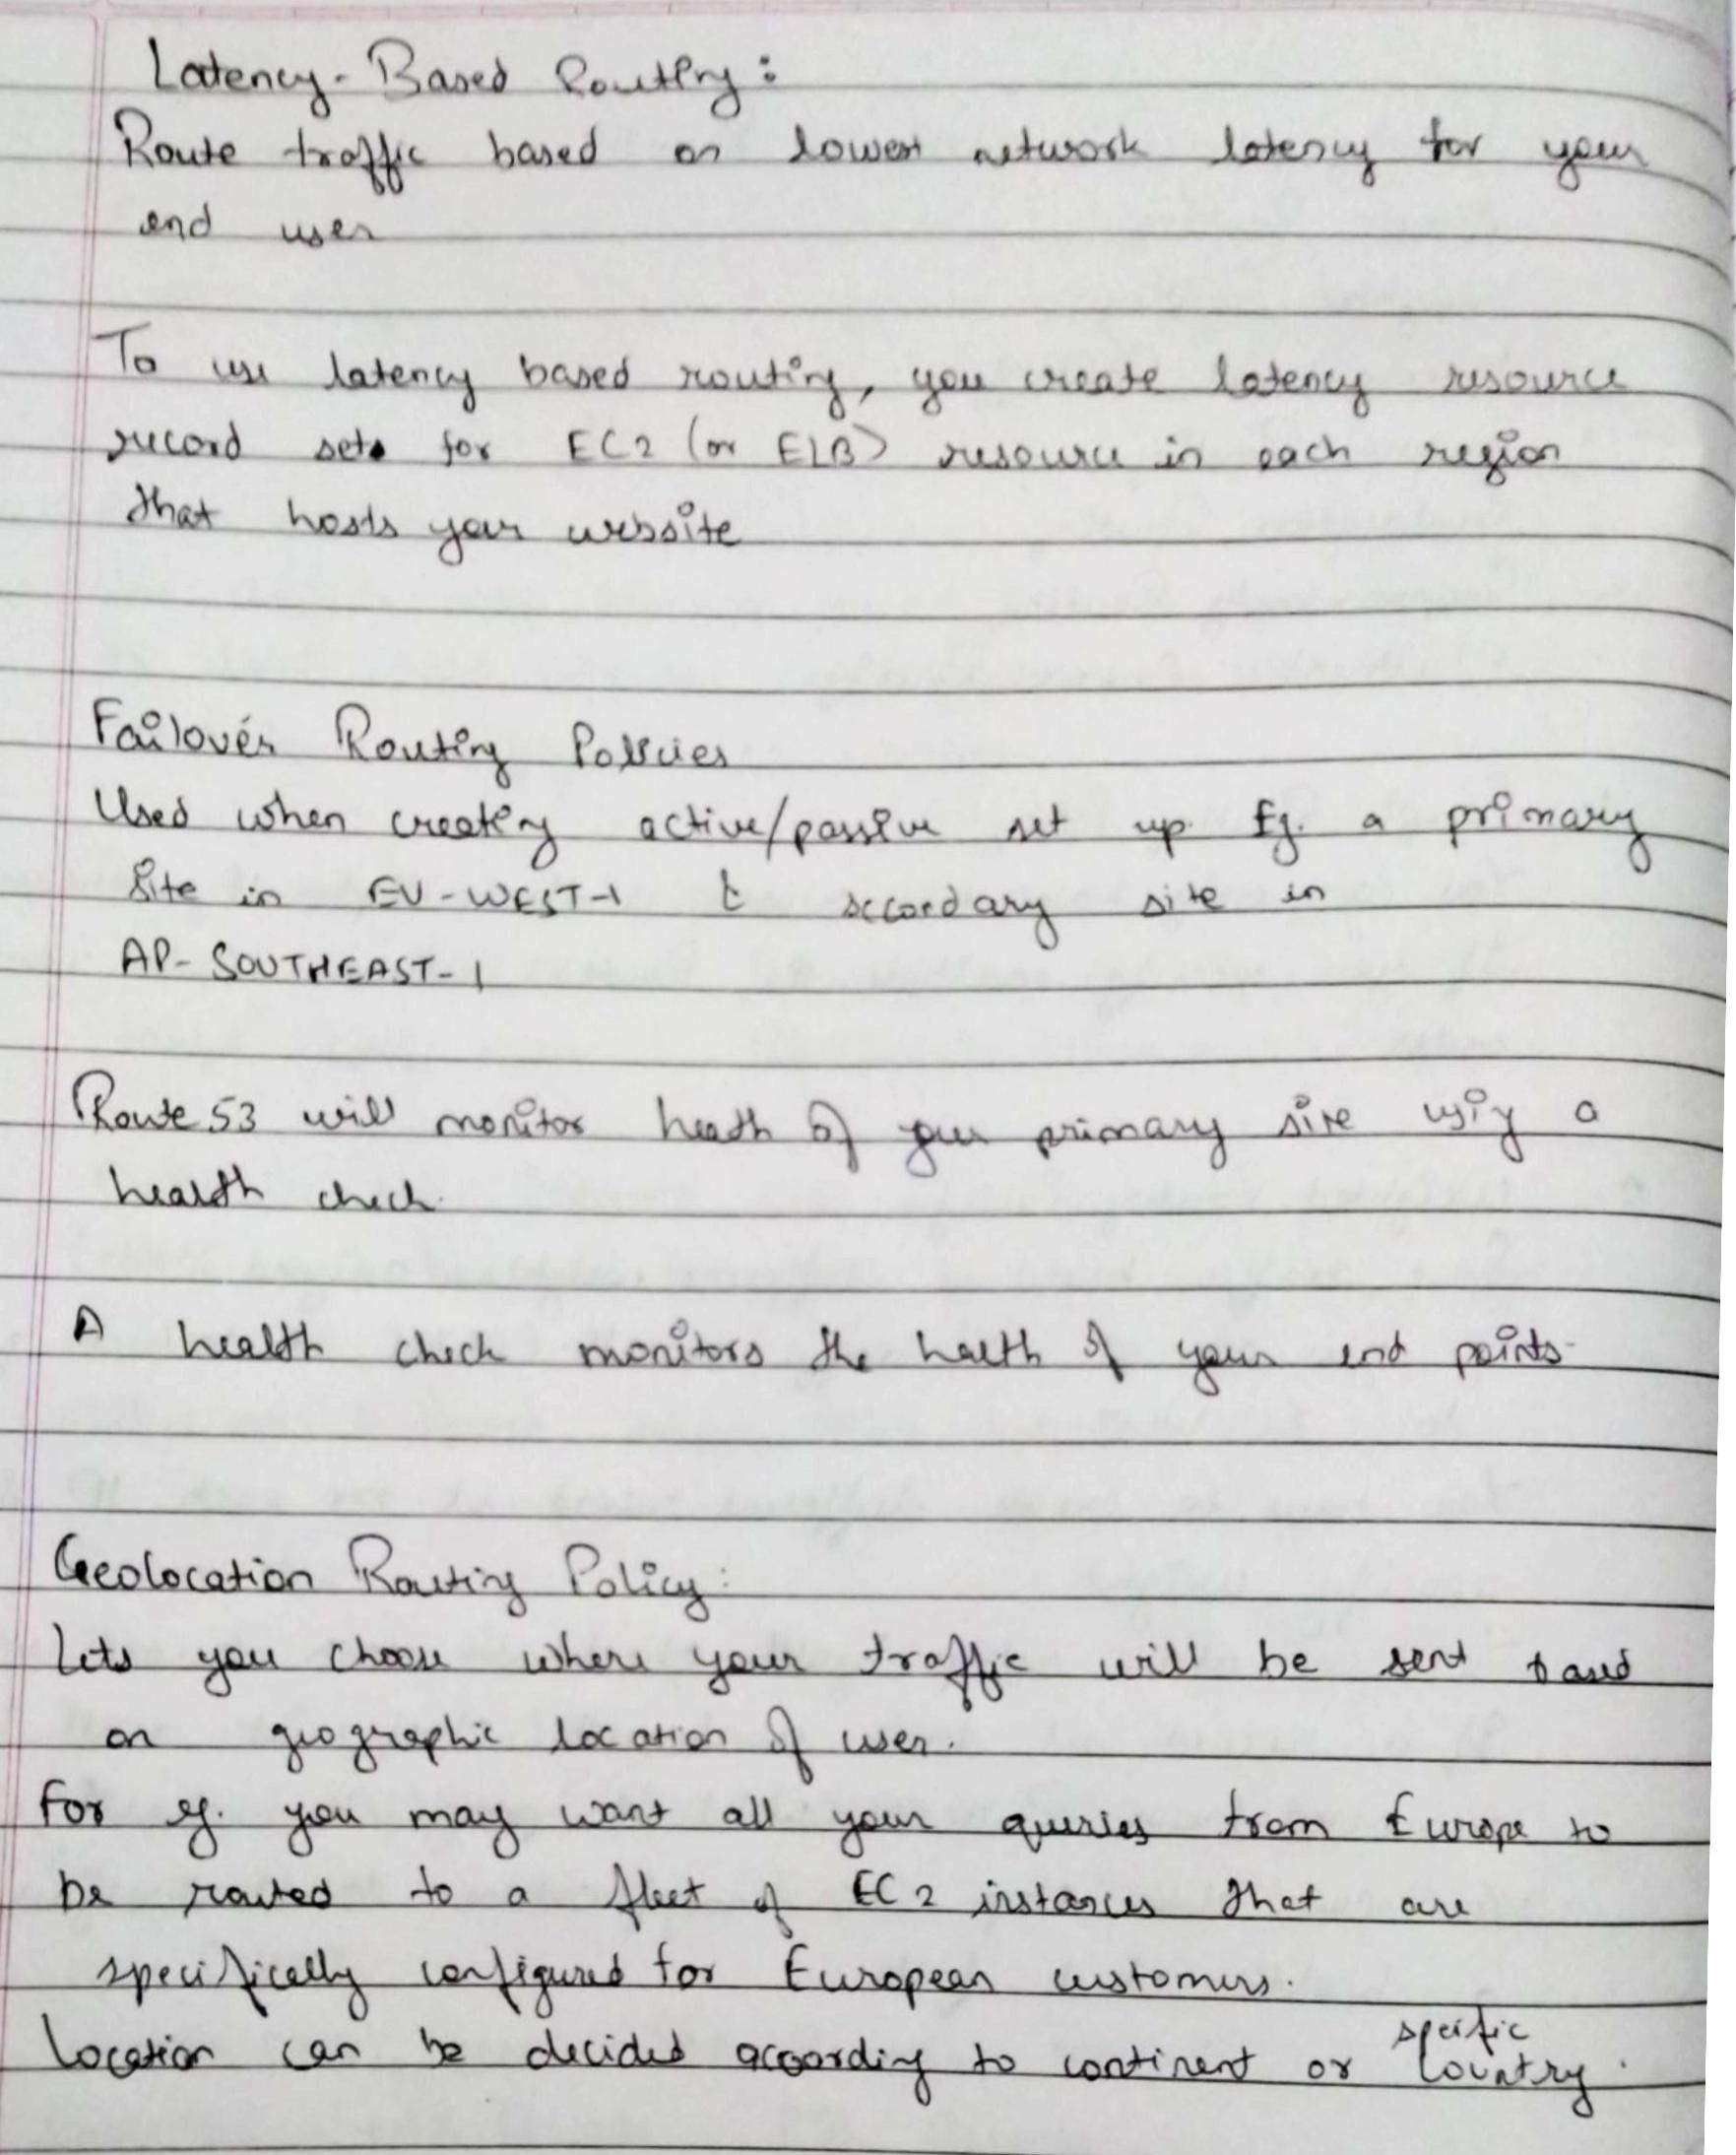 Latency-Based Routing:
Route traffic based on lowest network latency for your
end user
To use latency based routing, you create latency resource
record sets for EC2 (or ELB) resource in each region
that hosts your website
Failover Routing Policies
Used when creating active/passive set up. Eg. a primary
Site in EU-WEST-1 & secondary site in
AP-SOUTHEAST-1
Route 53 will monitor heath of your primary site using a
health check.
A health check monitors the halth of your end points.
Geolocation Routing Policy:
Lets you choose where your traffic will be sent based
on geographic location of user.
For eg. you may want all your queries from Europe to
be routed to a fleet of EC2 instances that are
specifically configured for European customers.
specific
Location can be decided according to continent or Country.